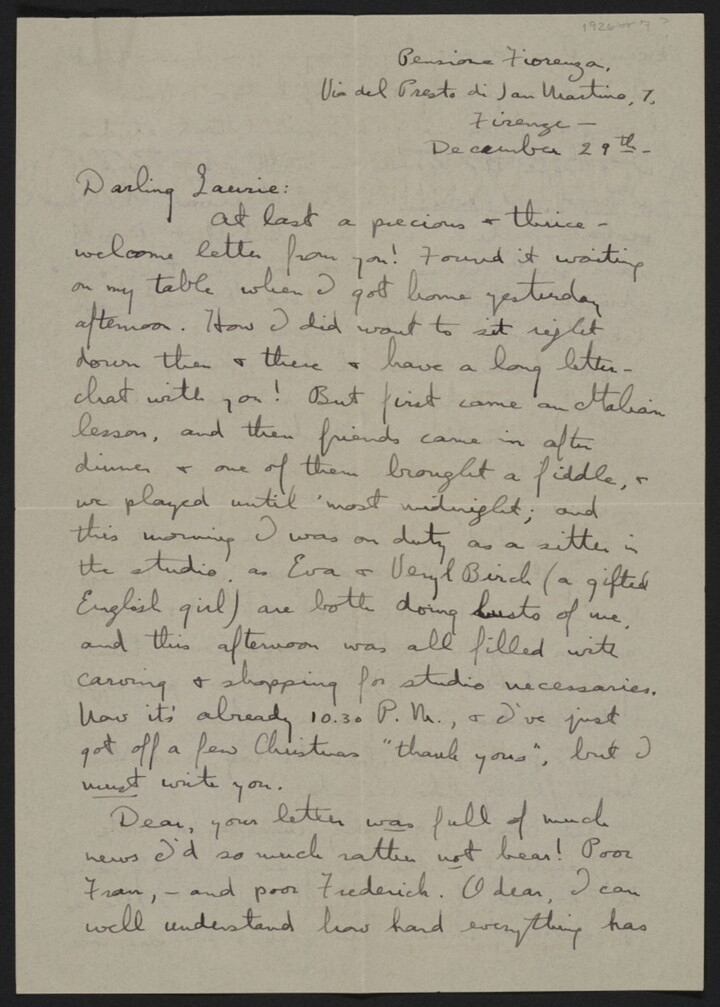 1926 or 7?
Pensione Fiorenza,
Via del Presto di San Martino, 7,
Firenze —
December 29th —
Darling Laurie:
At last a precious & thrice-
welcome letter from you! Found it waiting
on my table when I got home yesterday
afternoon. How I did want to sit right
down then & there & have a long letter-
chat with you! But first came an Italian
lesson, and then friends came in after
dinner & one of them brought a fiddle, &
we played until 'most midnight; and
this morning I was on duty as a sitter in
the studio, as Eva & Veryl Birch (a gifted
English girl) are both doing busts of me,
and this afternoon was all filled with
carving & shopping for studio necessaries.
Now it's already 10.30 P.M., & I've just
got off a few Christmas "thank yous", but I
must write you.
Dear, your letter was full of much
news I'd so much rather not hear! Poor
Fran, — and poor Frederick. O dear, I can
well understand how hard everything has